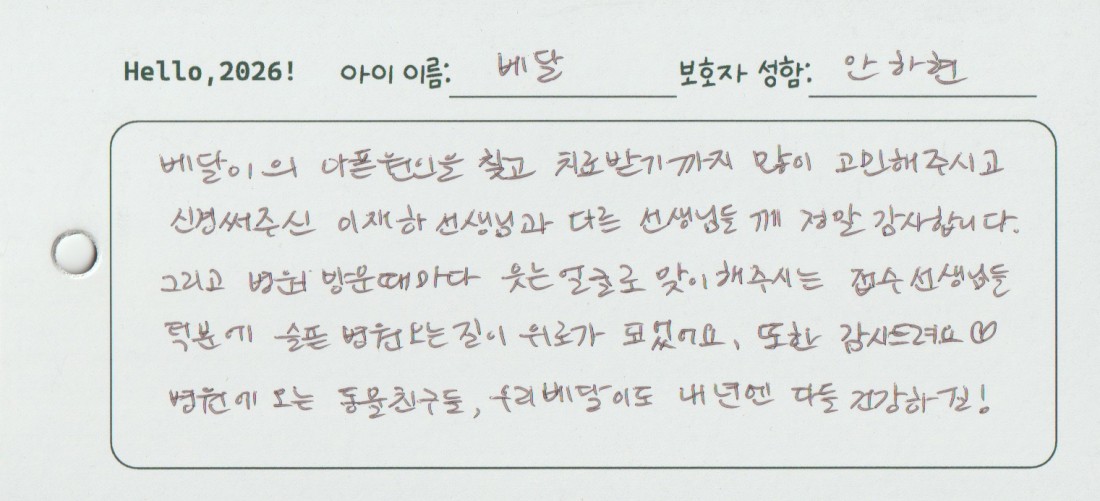 Hello,2026! 아이 이름: 베달 보호자 성함: 안하현
베달이의 아픈원인을 찾고 치료받기까지 많이 고민해주시고
신경써주신 이재하선생님과 다른 선생님들께 정말 감사합니다.
그리고 병원 방문때마다 웃는얼굴로 맞이해주시는 접수선생님들
덕분에 슬픈 병원오는길이 위로가 되었어요, 또한 감사드려요♡
병원에 오는 동물친구들, 우리베달이도 내년엔 다들 건강하길!